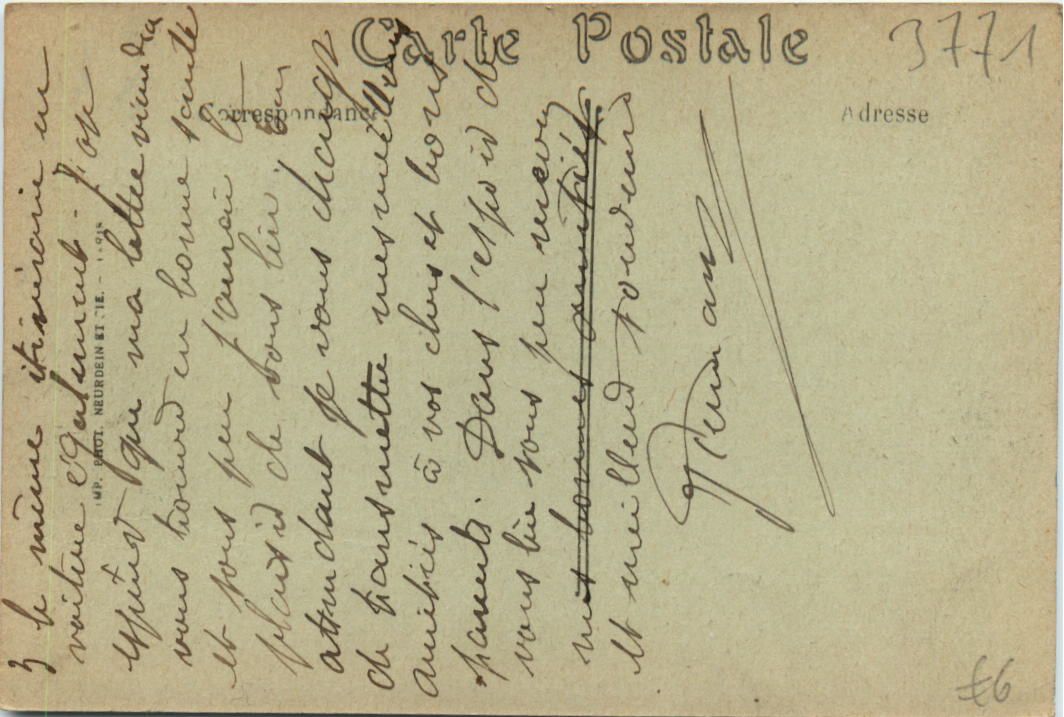 Carte Postale
3771
Correspondance
Adresse
IMP. PHOT. NEURDEIN ET CIE. - PARIS
3 le même itinéraire en
voiture également - J'ose
espérer que ma lettre viendra
vous trouver en bonne santé
et sous peu j'aurai le
plaisir de vous lire. En
attendant je vous charge
de transmettre mes meilleures
amitiés à vos chers et bons
parents. Dans l'espoir de
vous lire sous peu recevez
mes bonnes amitiés
et meilleurs souvenirs
Fernand
£6